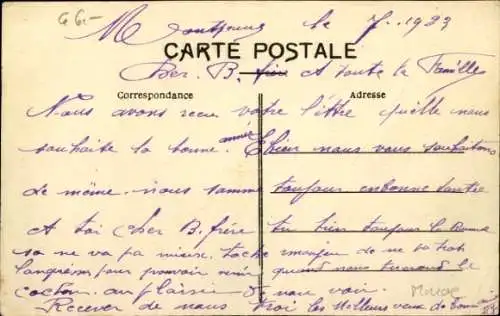 le 7. 1933
CARTE POSTALE
Cher B. frère A toute la Familles
Correspondance Adresse
Nous avons recu votre lettre quelle nous
souhaite la bonne année Ebien nous vous souhaitons
de même. nous somme toujour enbonne santée
A toi Cher B. frère tu tien toujour la Bonne
sa ne va pa mieux. tache manger de ne
pour pouvoir venir quand nous le
cochon. au plaisir de vou voir.
Recever de nous troi les Meilleurs veux de bonne année